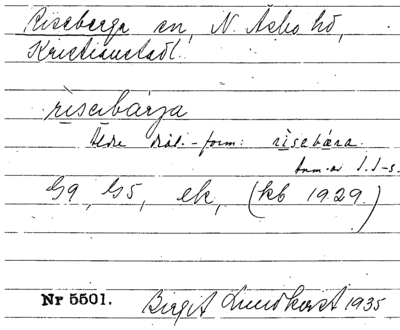 Riseberga sn, N. Åsbo hd,
Kristianstadl.
risibárja
Äldre dial.-form: risabára.
G9, G5, ek, (kb 1929.)
Nr 5501. Birgit Lundkvist 1935